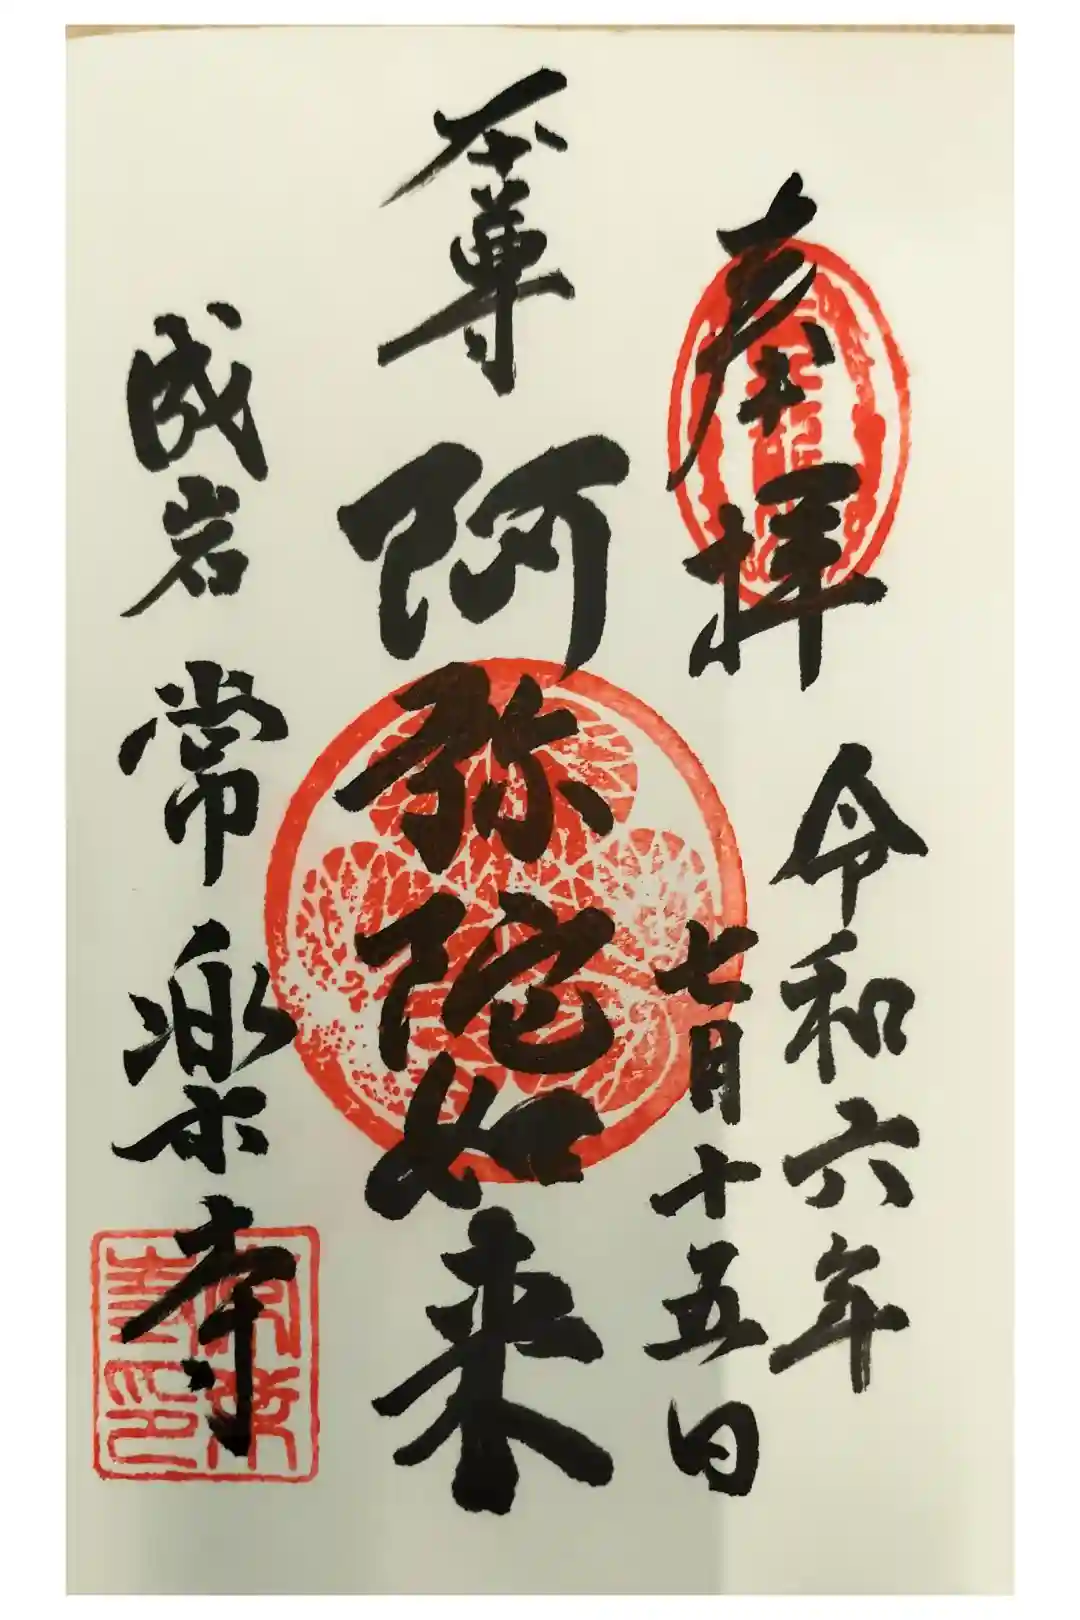 奉拝
令和六年
七月十五日
本尊
阿弥陀如来
成岩
常楽寺